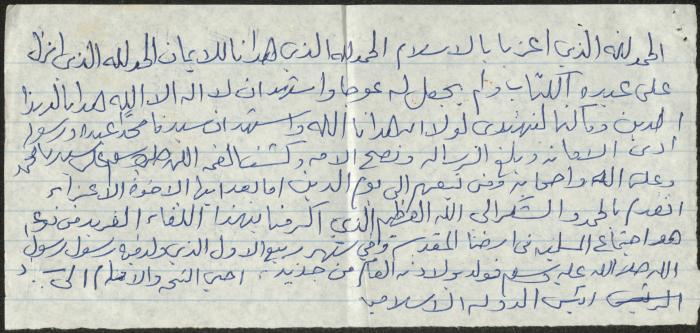 الحمد لله الذي اعزنا بالاسلام الحمد لله الذي هدانا للايمان الحمد لله الذي انزل
على عبده الكتاب ولم يجعل له عوجا واشهد ان لا اله الا الله هدانا لهذا
الدين وما كنا لنهتدي لولا ان هدانا الله واشهد ان سيدنا محمدا عبده ورسوله
ادى الامانه وبلغ الرساله ونصح الامه وكشف الغمه اللهم صلي وسلم على سيدنا محمد
وعلى اله واصحابه ومن تبعهم الى يوم الدين اما بعد ايها الاخوة الاعزاء
اتقدم بالحمد والشكر الى الله العظيم الذي اكرمنا بهذا اللقاء الفريد من نوعه
هو اجتماع المسلمين في ارضنا المقدسه وفي شهر ربيع الاول الذي ولد فيه رسول
الله صلى الله عليه وسلم فولد بولادته العالم من جديد. اهدي التحيه والاحترام الى
رئيس الدوله الاسلاميه